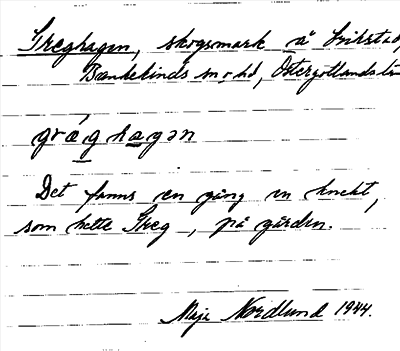 Greghagen, skogsmark å
Bankekinds sn o. hd, Östergötlands län
grǽghagən
Det fanns en gång en knekt,
som hette Greg, på gården.
Maja Nordlund 1944.